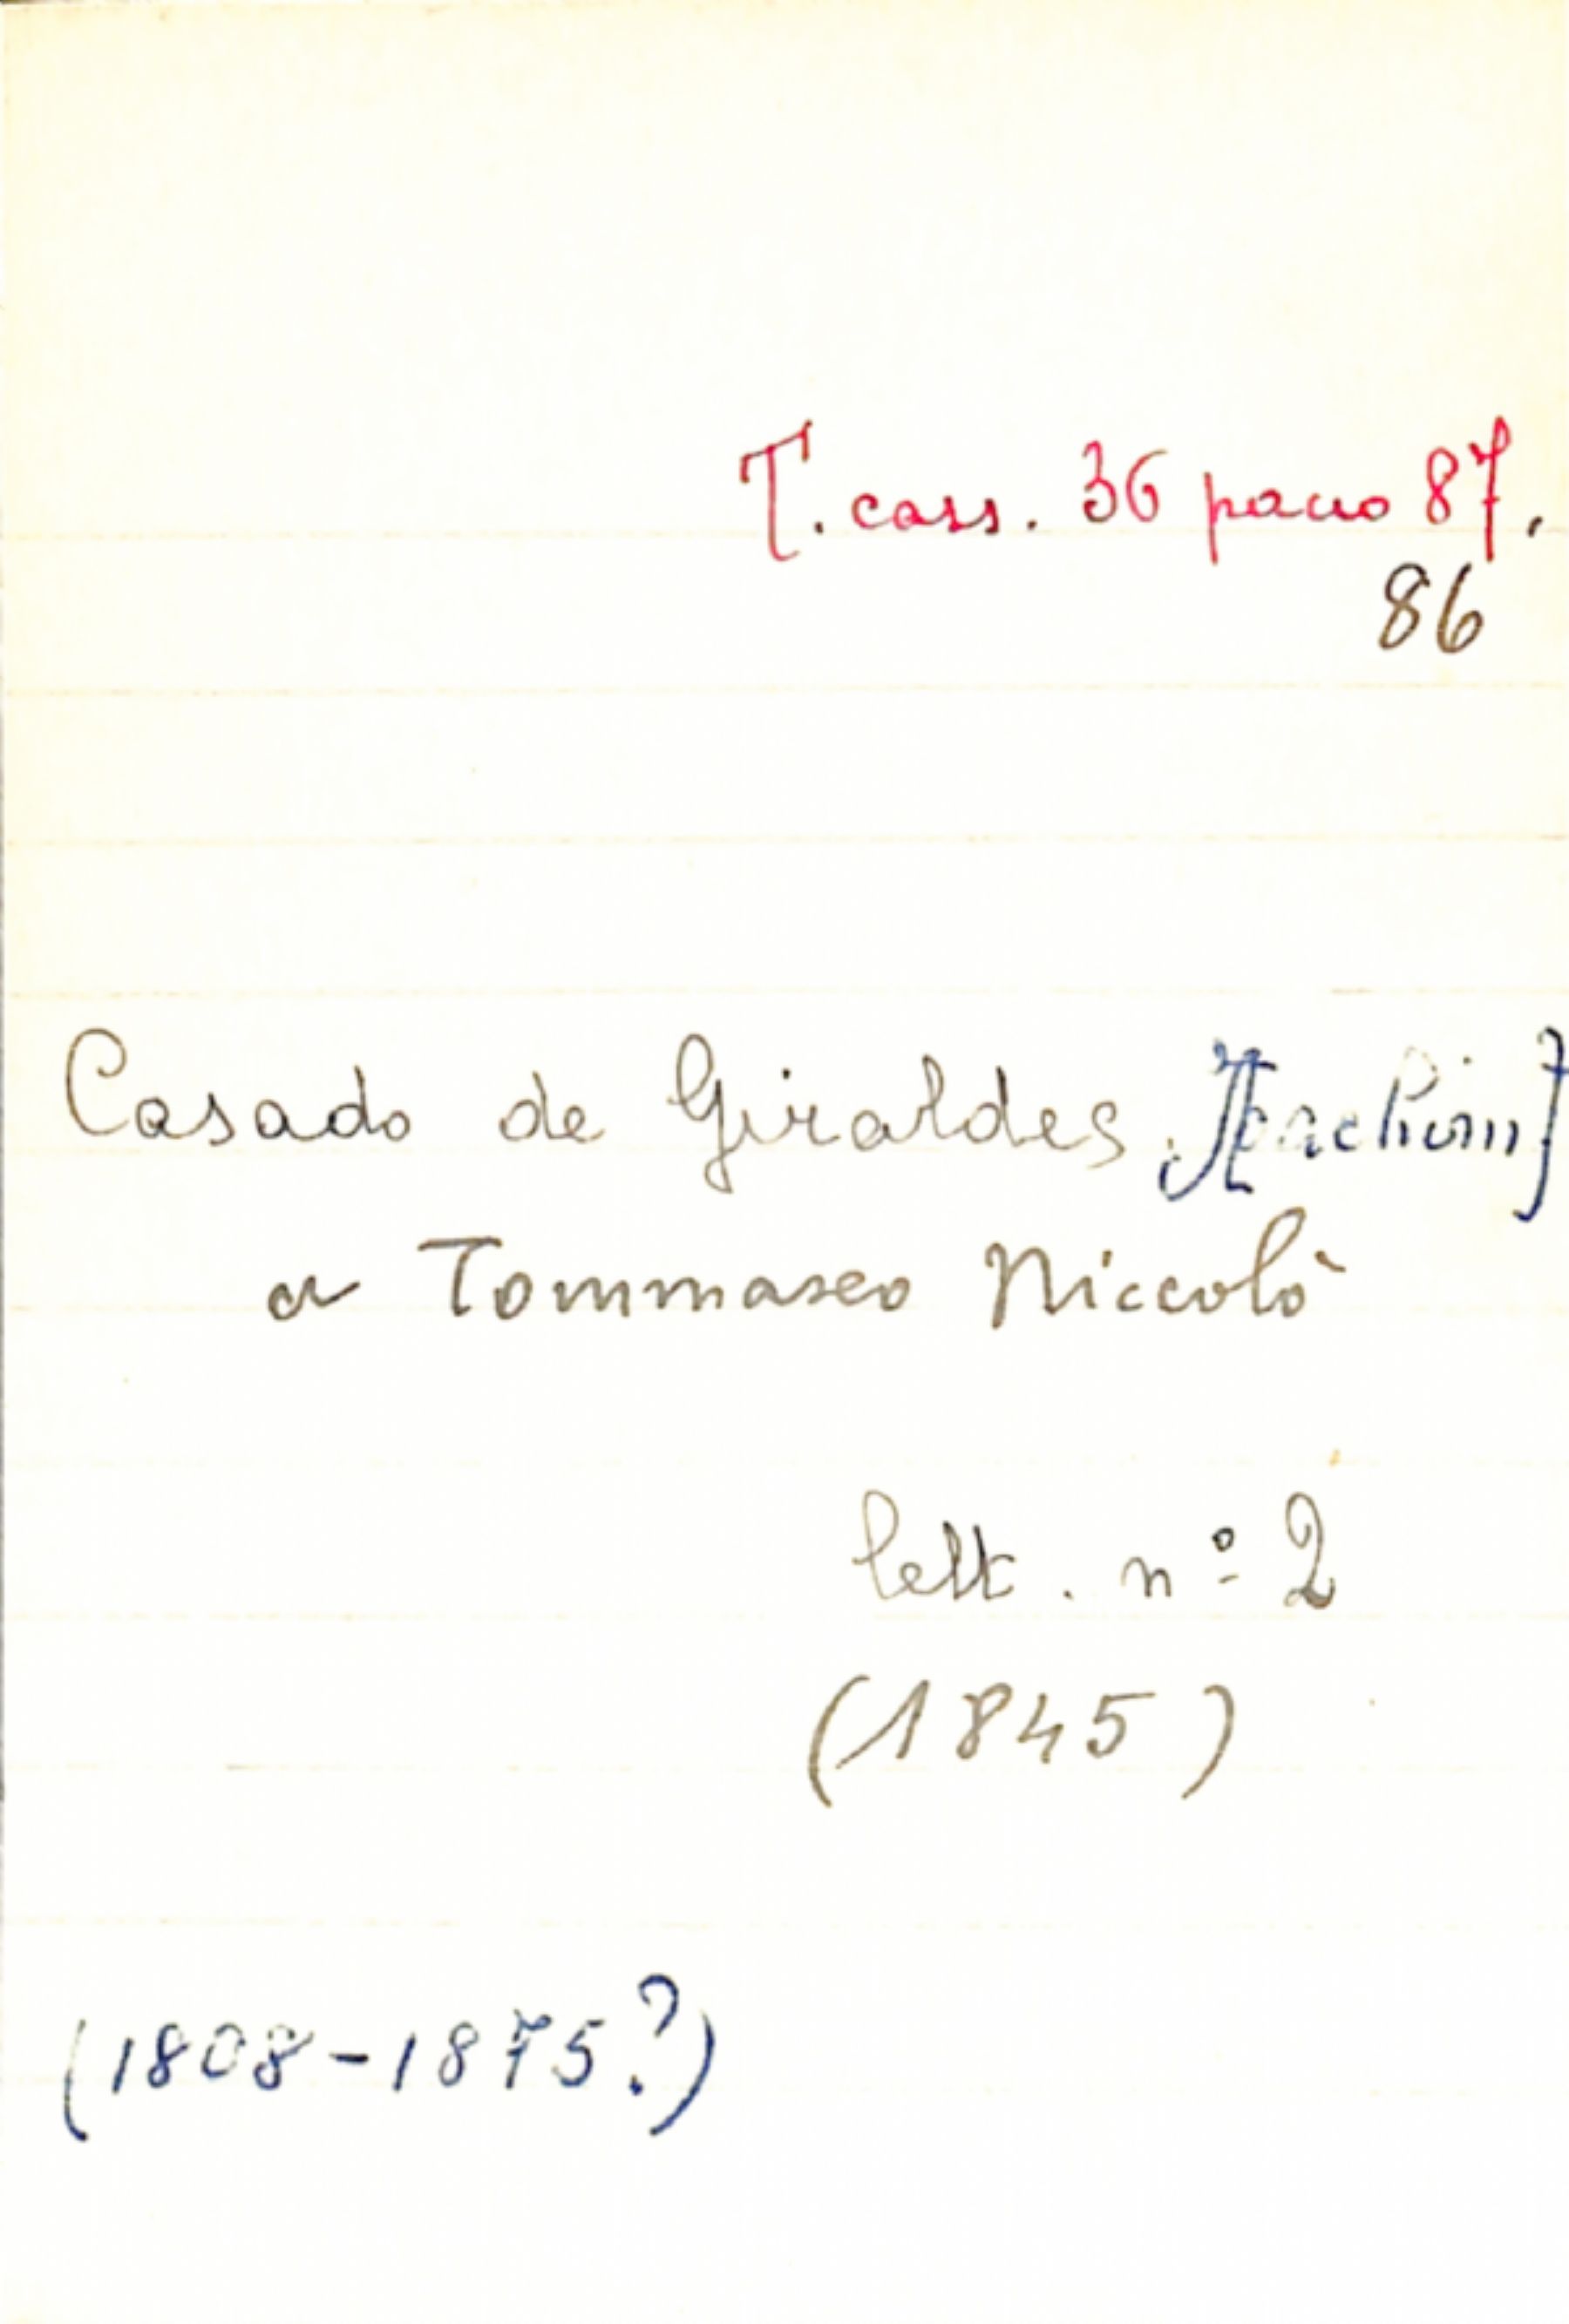 T. cass. 36 pacco 87.
86
Casado de Giraldes [Joachim]
a Tommaseo Niccolò
lett. nº 2
(1845)
(1808-1875?)